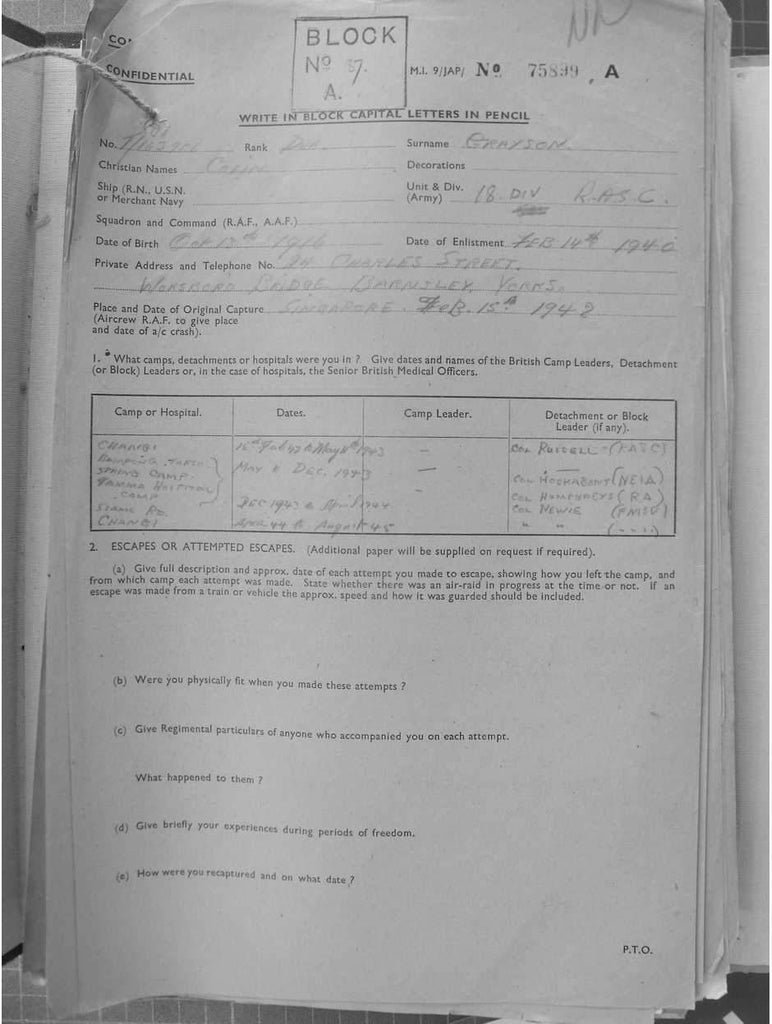 CONFIDENTIAL
BLOCK
Nº 37.
A.
M.I. 9/JAP/ Nº 75899 A
WRITE IN BLOCK CAPITAL LETTERS IN PENCIL
No. Rank Surname GRAYSON.
Christian Names COLIN Decorations
Ship (R.N., U.S.N. or Merchant Navy
Unit & Div. (Army) 18 DIV R.A.S.C.
Squadron and Command (R.A.F., A.A.F.)
Date of Birth Date of Enlistment FEB 14th 1940
Private Address and Telephone No. 24 CHARLES STREET.
WORSBORO BRIDGE BARNSLEY YORKS.
Place and Date of Original Capture SINGAPORE. FEB. 15th 1942
(Aircrew R.A.F. to give place
and date of a/c crash).
1. What camps, detachments or hospitals were you in ? Give dates and names of the British Camp Leaders, Detachment
(or Block) Leaders or, in the case of hospitals, the Senior British Medical Officers.
Camp or Hospital. Dates. Camp Leader. Detachment or Block
Leader (if any).
CHANGI 15th Feb 42 to May 8th 1943 — COL (RASC)
MAY to DEC. 1943 —
SPRING CAMP.
HOSPITAL COL HUMPHREYS (RA)
CAMP
RD. DEC 1943 to April 1944 COL
CHANGI APRIL 44 to AUGUST 45 " "
2. ESCAPES OR ATTEMPTED ESCAPES. (Additional paper will be supplied on request if required).
(a) Give full description and approx. date of each attempt you made to escape, showing how you left the camp, and
from which camp each attempt was made. State whether there was an air-raid in progress at the time or not. If an
escape was made from a train or vehicle the approx. speed and how it was guarded should be included.
(b) Were you physically fit when you made these attempts ?
(c) Give Regimental particulars of anyone who accompanied you on each attempt.
What happened to them ?
(d) Give briefly your experiences during periods of freedom.
(e) How were you recaptured and on what date ?
P.T.O.